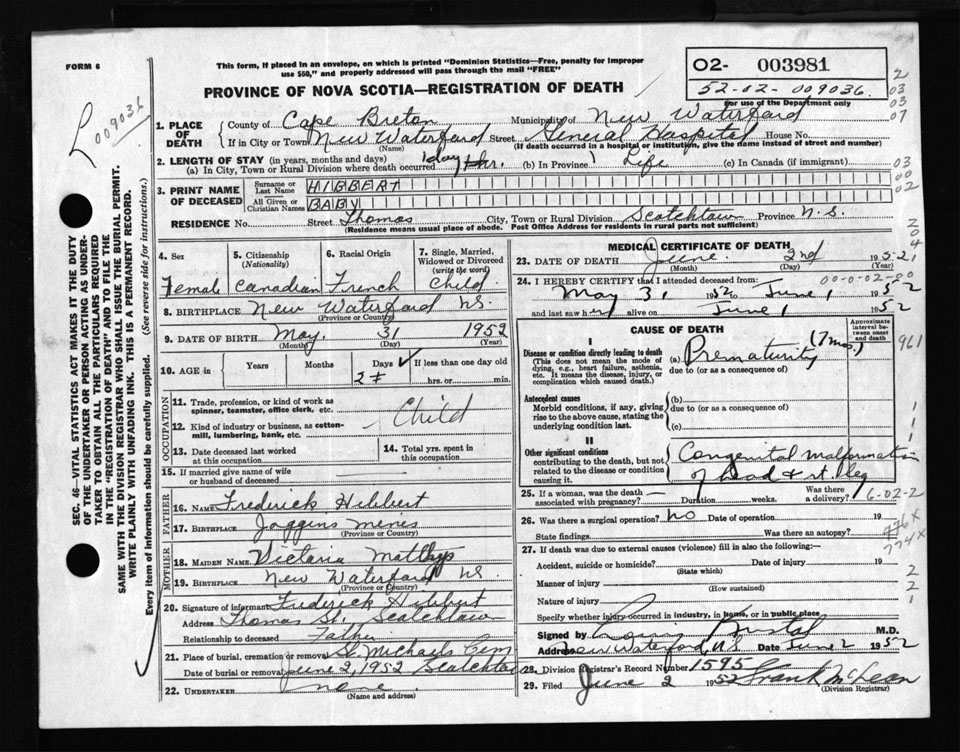 FORM 6
This form, if placed in an envelope, on which is printed "Dominion Statistics—Free, penalty for improper
use $50," and properly addressed will pass through the mail "FREE"
PROVINCE OF NOVA SCOTIA—REGISTRATION OF DEATH
O2- 003981
52-02-009036
For use of the Department only
L 009036
2
03
03
07
03
00
02
204
SEC. 46—VITAL STATISTICS ACT MAKES IT THE DUTY
OF THE UNDERTAKER OR PERSON ACTING AS UNDER-
TAKER TO OBTAIN ALL THE PARTICULARS REQUIRED
IN THE "REGISTRATION OF DEATH" AND TO FILE THE
SAME WITH THE DIVISION REGISTRAR WHO SHALL ISSUE THE BURIAL PERMIT.
WRITE PLAINLY WITH UNFADING INK. THIS IS A PERMANENT RECORD.
Every item of information should be carefully supplied. (See reverse side for instructions.)
1. PLACE OF DEATH
County of Cape Breton Municipality of New Waterford
If in City or Town New Waterford Street General Hospital House No.
(Name) (If death occurred in a hospital or institution, give the name instead of street and number)
2. LENGTH OF STAY (in years, months and days)
(a) In City, Town or Rural Division where death occurred 1 day hr. (b) In Province Life (c) In Canada (if immigrant)
3. PRINT NAME OF DECEASED
Surname or Last Name HIBBERT
All Given or Christian Names BABY
RESIDENCE No. Street Thomas City, Town or Rural Division Scotchtown Province N.S.
(Residence means usual place of abode. Post Office Address for residents in rural parts not sufficient)
4. Sex
Female
5. Citizenship (Nationality)
Canadian
6. Racial Origin
French
7. Single, Married, Widowed or Divorced (write the word)
Child
8. BIRTHPLACE New Waterford NS.
(Province or Country)
9. DATE OF BIRTH May 31 1952
(Month) (Day) (Year)
10. AGE in Years Months Days 2 If less than one day old
hrs. or min.
OCCUPATION
11. Trade, profession or kind of work as
spinner, teamster, office clerk, etc.
Child
12. Kind of industry or business, as cotton-
mill, lumbering, bank, etc.
13. Date deceased last worked
at this occupation
14. Total yrs. spent in
this occupation
15. If married give name of wife
or husband of deceased
FATHER
16. NAME Frederick Hibbert
17. BIRTHPLACE Joggins Mines
(Province or Country)
MOTHER
18. MAIDEN NAME Victoria
19. BIRTHPLACE New Waterford NS.
(Province or Country)
20. Signature of informant Frederick Hibbert
Address Thomas St. Scotchtown
Relationship to deceased Father
21. Place of burial, cremation or removal St. Michaels Cem
Date of burial or removal June 2, 1952 Scotchtown
22. UNDERTAKER
(Name and address)
MEDICAL CERTIFICATE OF DEATH
23. DATE OF DEATH June 2nd 1952
(Month) (Day) (Year)
00-0-02-00
24. I HEREBY CERTIFY that I attended deceased from:
May 31 1952 to June 1 1952
and last saw her alive on June 1 1952
CAUSE OF DEATH
Approximate interval between onset and death
I
Disease or condition directly leading to death
(This does not mean the mode of
dying, e.g., heart failure, asthenia,
etc. It means the disease, injury, or
complication which caused death.
(a) Prematurity (7 mos.)
due to (or as a consequence of)
961
Antecedent causes
Morbid conditions, if any, giving
rise to the above cause, stating the
underlying condition last.
(b)
due to (or as a consequence of)
(c)
II
Other significant conditions
contributing to the death, but not
related to the disease or condition
causing it.
Congenital malformation
of head & rt. leg
25. If a woman, was the death
associated with pregnancy? Duration weeks. Was there a delivery?
6-02-2
26. Was there a surgical operation? No Date of operation 19
State findings Was there an autopsy?
776X
774X
27. If death was due to external causes (violence) fill in also the following:—
Accident, suicide or homicide? Date of injury 19
(State which)
Manner of injury
(How sustained)
Nature of injury
Specify whether injury occurred in industry, in home, or in public place
Signed by M.D.
Address New Waterford, N.S. Date June 2 1952
28. Division Registrar's Record Number 1595
29. Filed June 2 1952 Frank McLean
(Division Registrar)